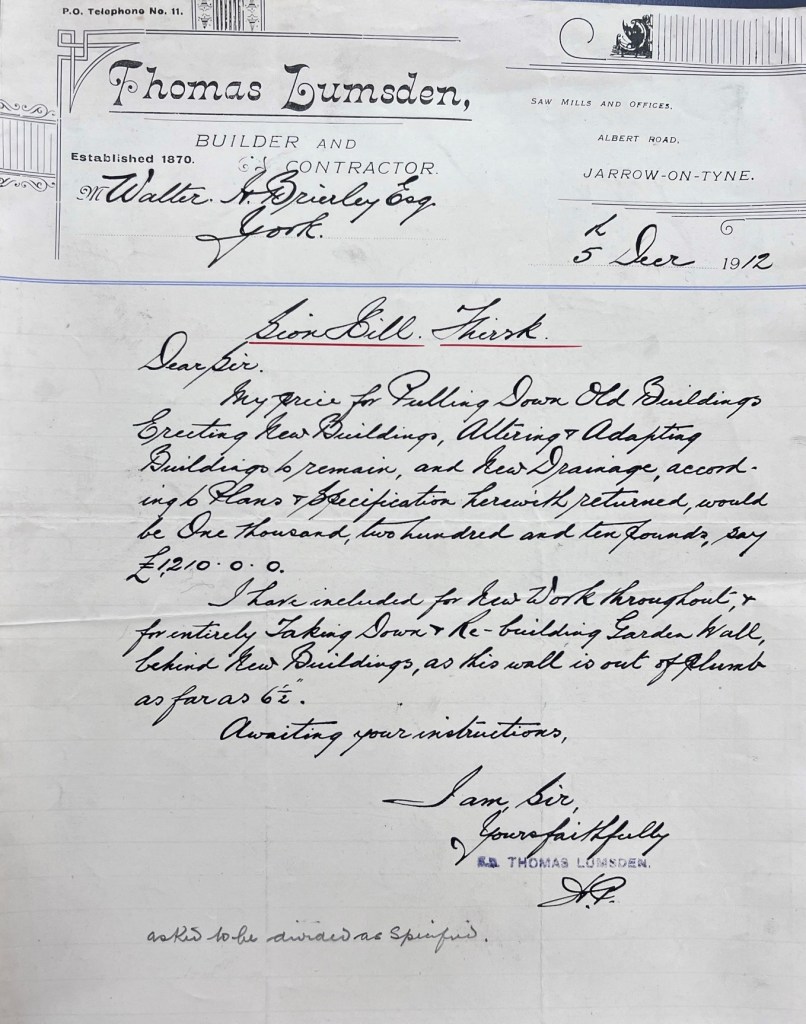 P.O. Telephone No. 11.
Thomas Lumsden,
BUILDER AND
CONTRACTOR.
Established 1870.
SAW MILLS AND OFFICES,
ALBERT ROAD,
JARROW-ON-TYNE.
M Walter. H. Brierley Esq.
York.
5th Decr 1912
Sion Hill. Thirsk.
Dear Sir.
My price for Pulling Down Old Buildings
Erecting New Buildings, Altering & Adapting
Buildings to remain, and New Drainage, accord-
ing to Plans & Specification herewith returned, would
be One thousand, two hundred and ten pounds, say
£1,210.0.0.
I have included for New Work throughout, &
for entirely Taking Down & Re-building Garden Wall,
behind New Buildings, as this wall is out of plumb
as far as 6½".
Awaiting your instructions,
I am, Sir,
Yours faithfully
THOMAS LUMSDEN.
asked to be divided as specified.